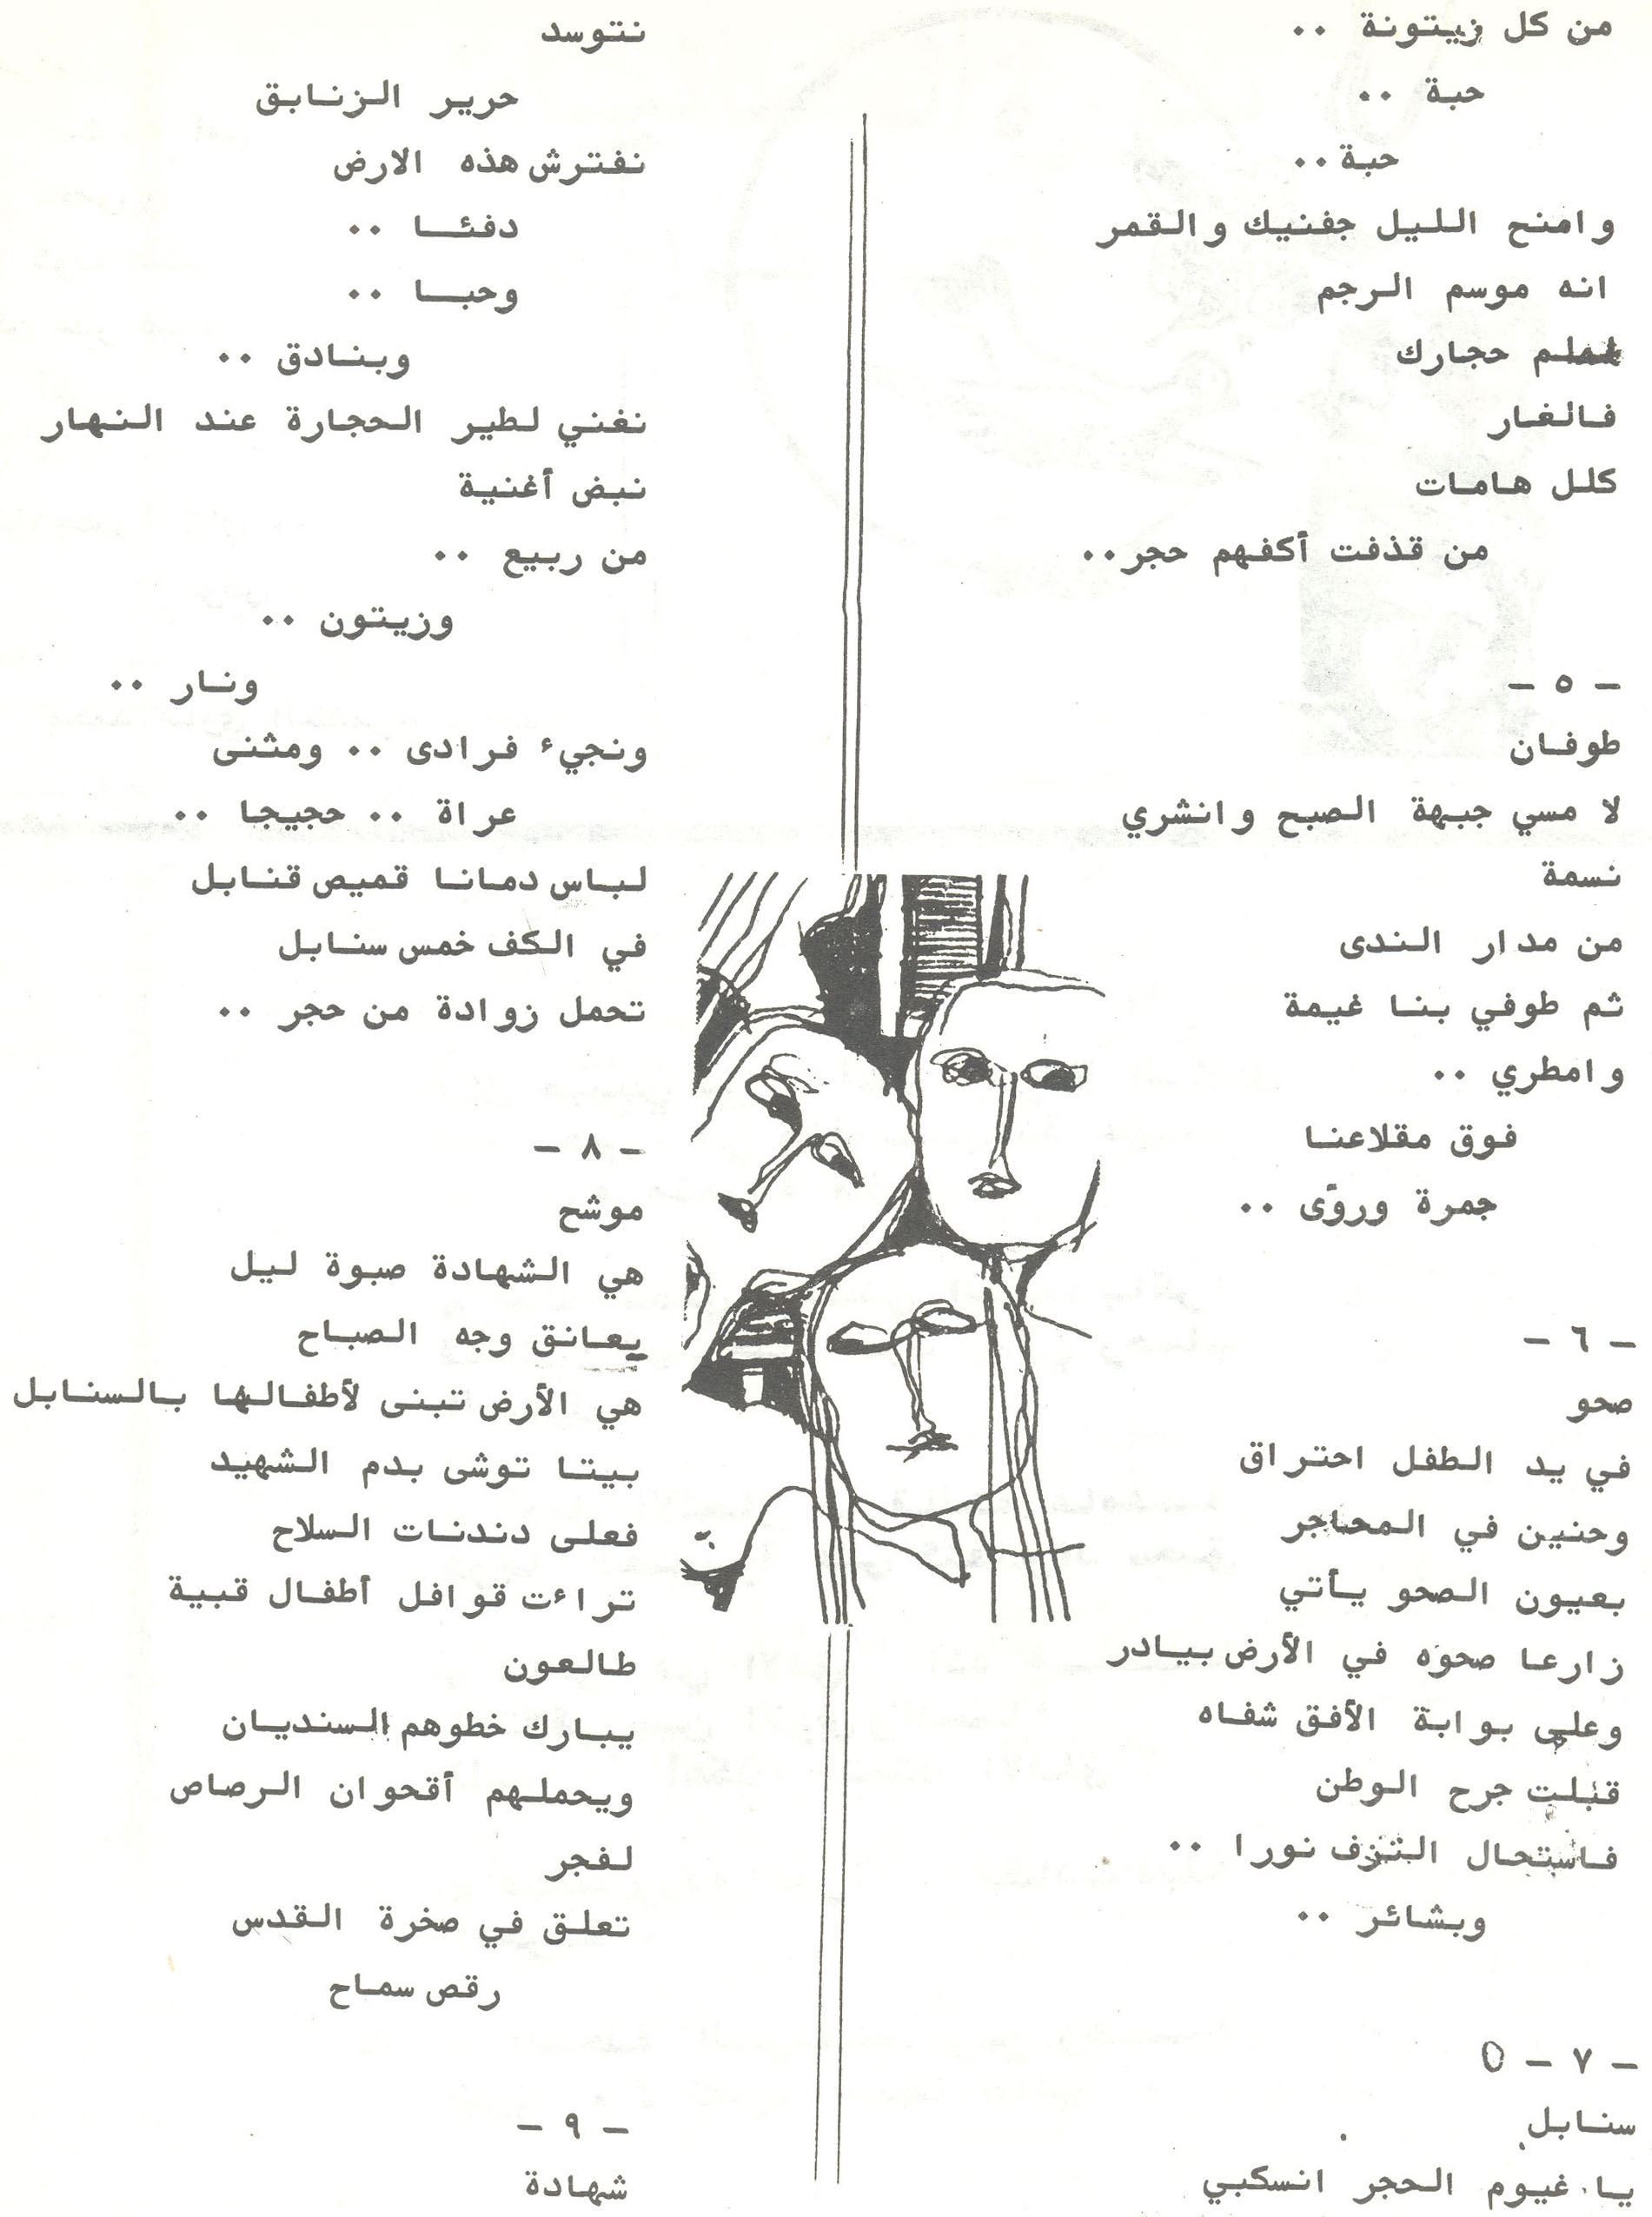 من كل زيتونة ..
حبة ..
حبة ..
وامنح الليل جفنيك والقمر
انه موسم الرجم
حجارك
فالغار
كلل هامات
من قذفت أكفهم حجر ..
- ٥ -
طوفان
لا مسي جبهة الصبح وانشري
نسمة
من مدار الندى
ثم طوفي بنا غيمة
وامطري ..
فوق مقلاعنا
جمرة ورؤى ..
- ٦ -
صحو
في يد الطفل احتراق
وحنين في المحاجر
بعيون الصحو يأتي
زارعا صحوه في الأرض بيادر
وعلى بوابة الأفق شفاه
قبلت جرح الوطن
فاستحال النزف نورا ..
وبشائر ..
- ٧ -
سنابل
يا غيوم الحجر انسكبي
نتوسد
حرير الزنابق
نفترش هذه الارض
دفئا ..
وحبا ..
وبنادق ..
نغني لطير الحجارة عند النهار
نبض أغنية
من ربيع ..
وزيتون ..
ونار ..
ونجيء فرادى .. ومثنى
عراة .. حجيجا ..
لباس دمانا قميص قنابل
في الكف خمس سنابل
تحمل زوادة من حجر ..
- ٨ -
موشح
هي الشهادة صبوة ليل
يعانق وجه الصباح
هي الأرض تبنى لأطفالها بالسنابل
بيتا توشى بدم الشهيد
فعلى دندنات السلاح
تراءت قوافل أطفال قبية
طالعون
يبارك خطوهم السنديان
ويحملهم أقحوان الرصاص
لفجر
تعلق في صخرة القدس
رقص سماح
- ٩ -
شهادة